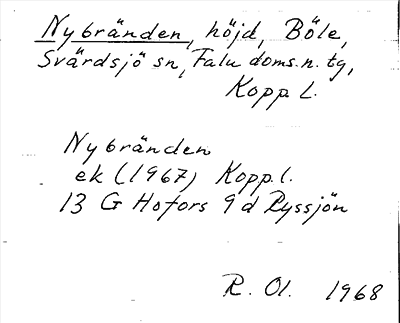 Nybränden, höjd, Böle,
Svärdsjö sn, Falu doms.n. tg,
Kopp. L.
Nybränden
ek (1967) Kopp. l.
13 G Hofors 9 d Ryssjön
R. Ol. 1968